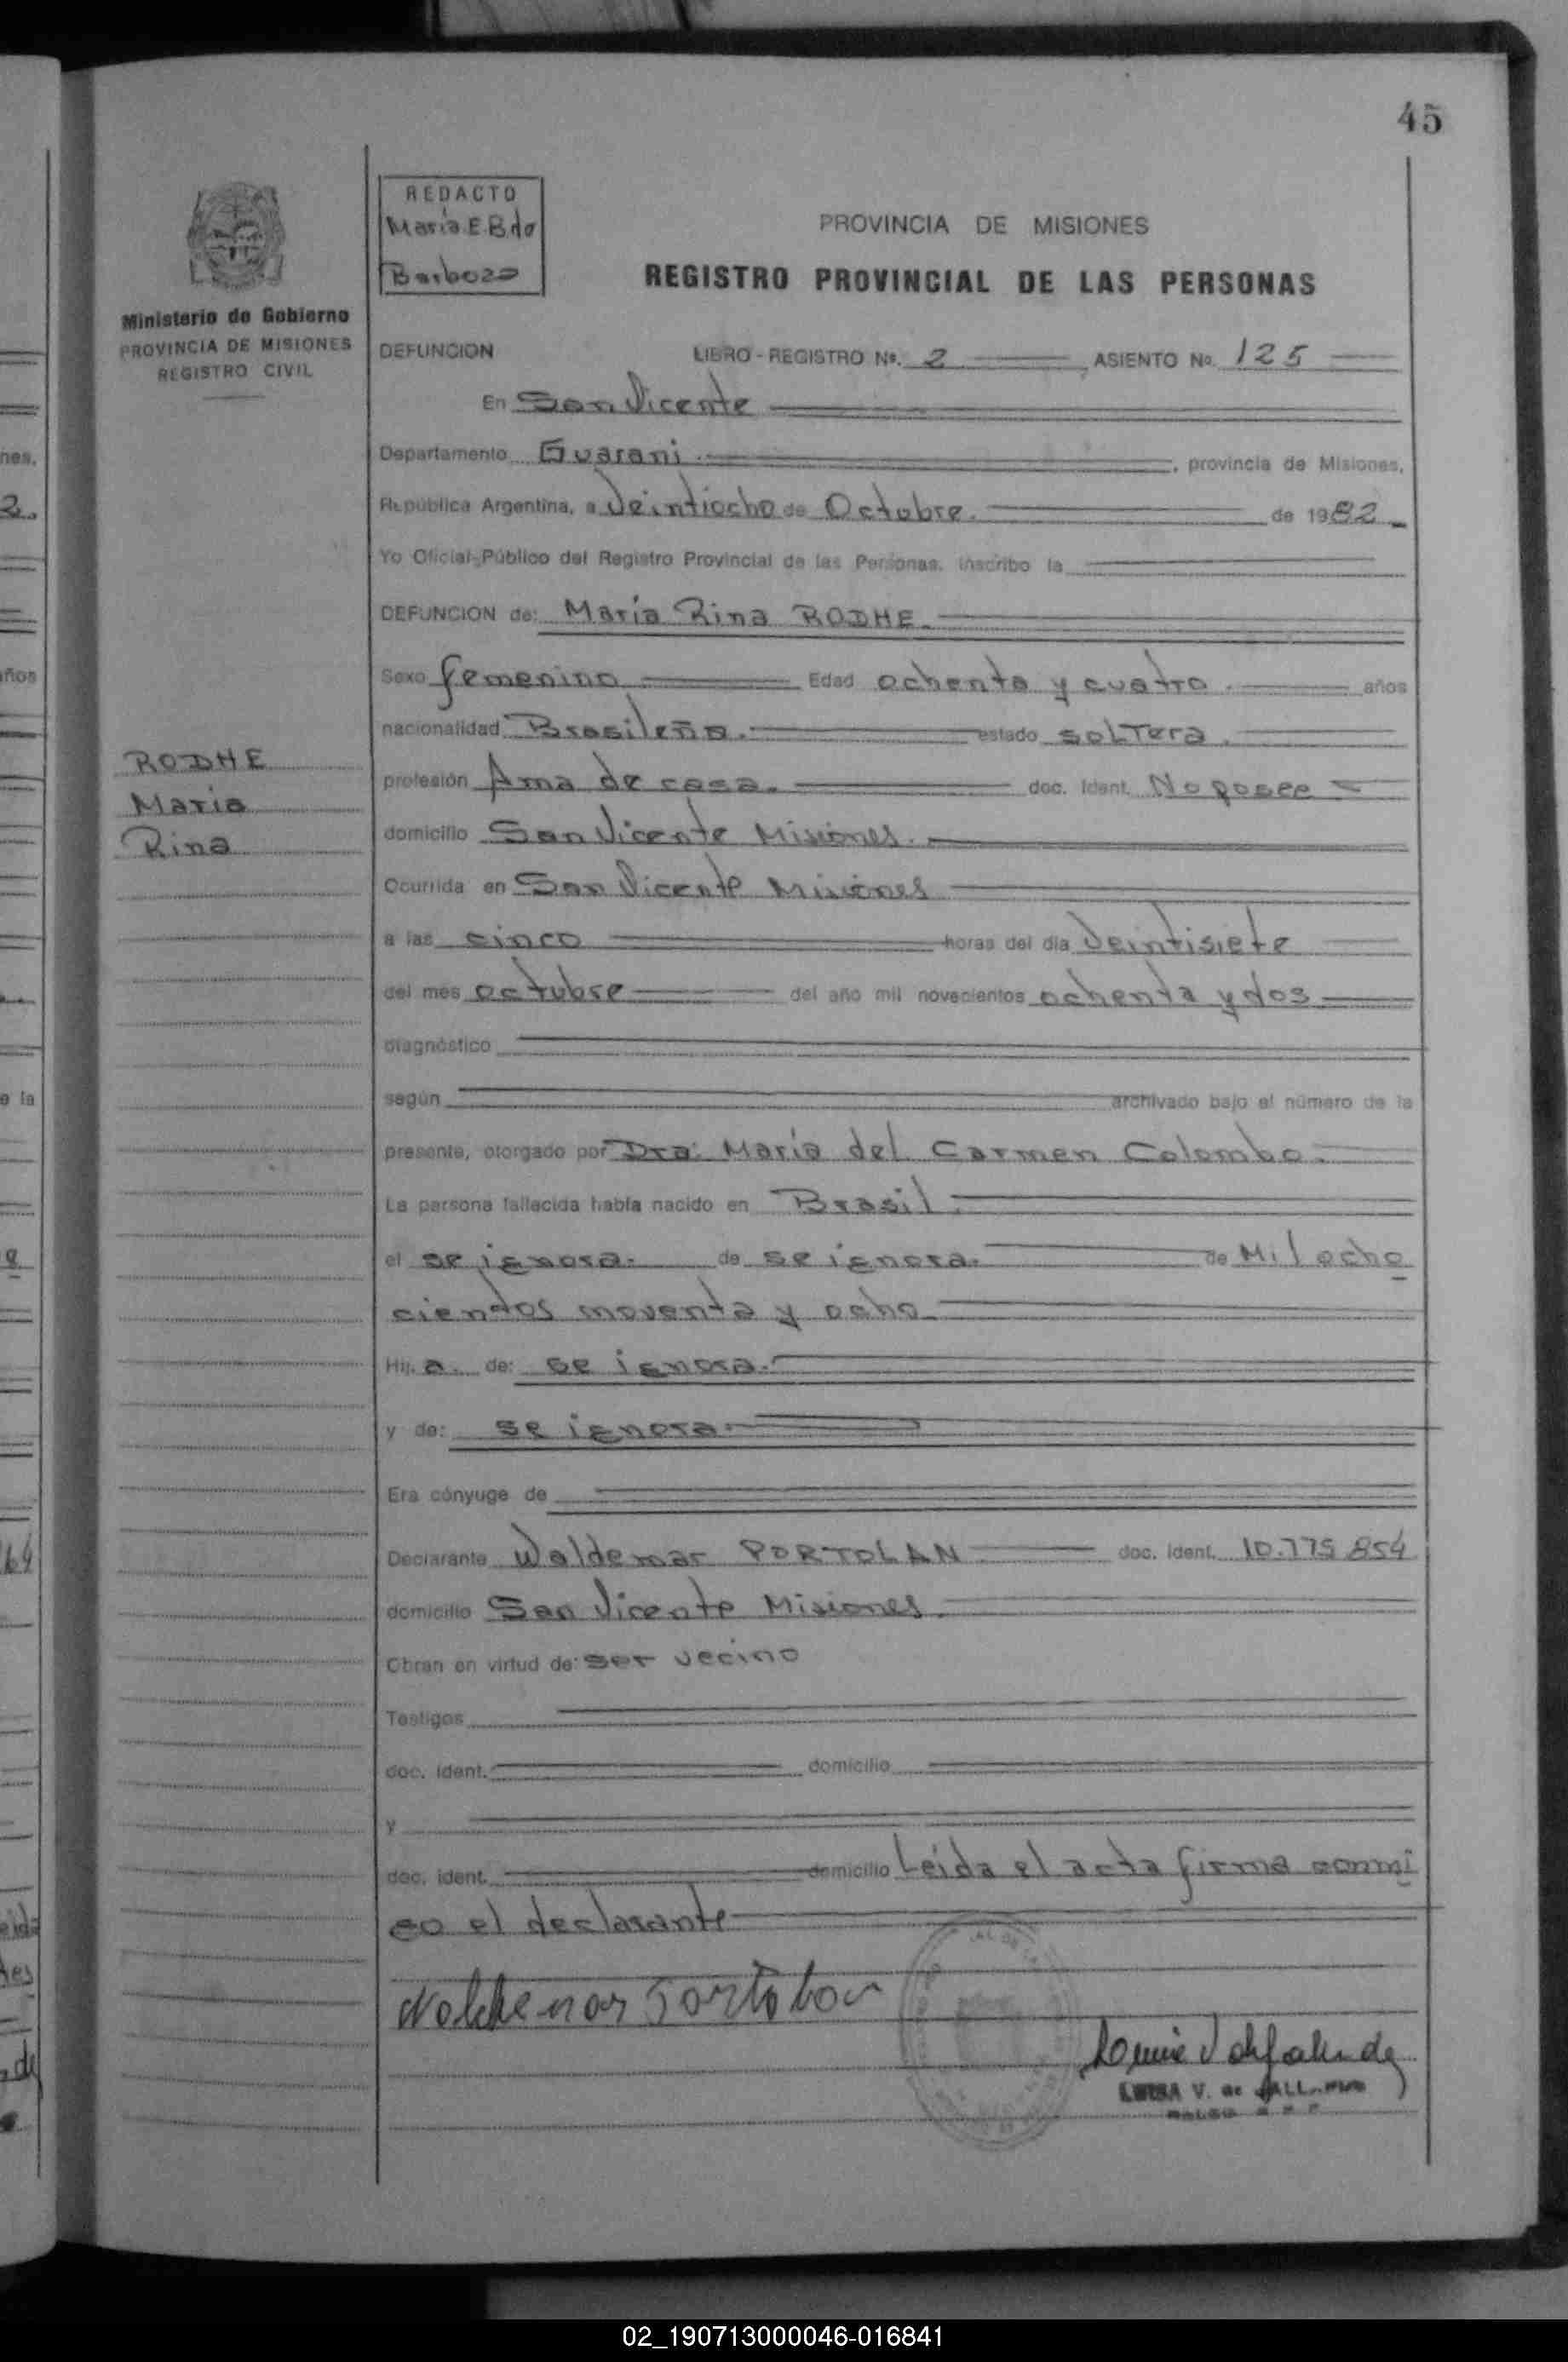 45
REDACTO
María E. B. do
Barbozo
PROVINCIA DE MISIONES
REGISTRO PROVINCIAL DE LAS PERSONAS
Ministerio de Gobierno
PROVINCIA DE MISIONES
REGISTRO CIVIL
DEFUNCION LIBRO - REGISTRO Nº. 2 ASIENTO Nº. 125
En San Vicente
Departamento Guarani , provincia de Misiones,
República Argentina, a Veintiocho de Octubre. de 1982
Yo Oficial Público del Registro Provincial de las Personas, inscribo la
DEFUNCION de: María Rina RODHE.
Sexo femenino Edad ochenta y cuatro. años
nacionalidad Brasileña. estado solTera.
RODHE
María
Rina
profesión Ama de casa. doc. Ident. No posee
domicilio San Vicente Misiones.
Ocurrida en San Vicente Misiones
a las cinco horas del día Veintisiete
del mes octubre del año mil novecientos ochenta y dos
diagnóstico
según archivado bajo el número de la
presente, otorgado por Dra: María del Carmen Colombo.
La persona fallecida había nacido en Brasil.
el se ignora. de se ignora. de Mil ocho
cientos noventa y ocho
Hij. a. de: se ignora.
y de: se ignora.
Era cónyuge de
Declarante Waldemar PORTOLAN doc. Ident. 10.775.854
domicilio San Vicente Misiones.
Obran en virtud de: ser vecino
Testigos
doc. ident. domicilio
y
doc. ident. domicilio Leída el acta firma conmi
go el declarante
LUISA V. de
02_190713000046-016841